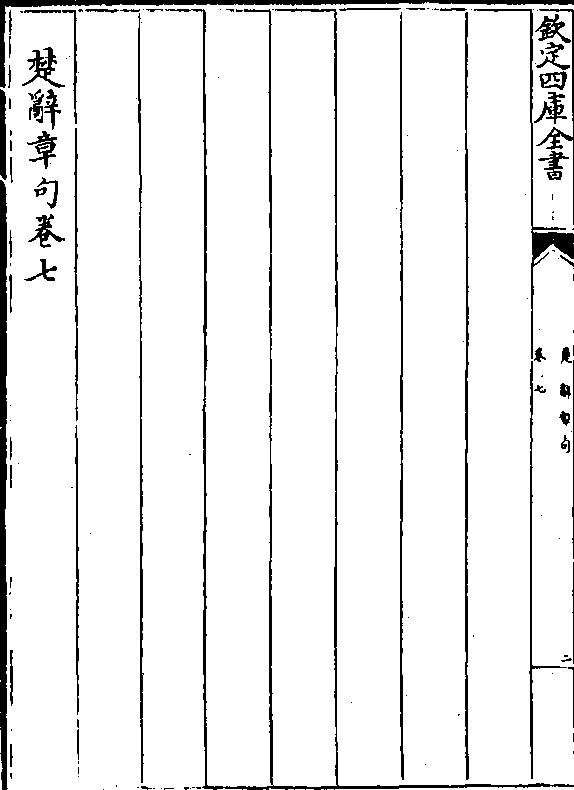 欽定四庫全書
楚辭章句
卷七
二
楚辭章句卷七